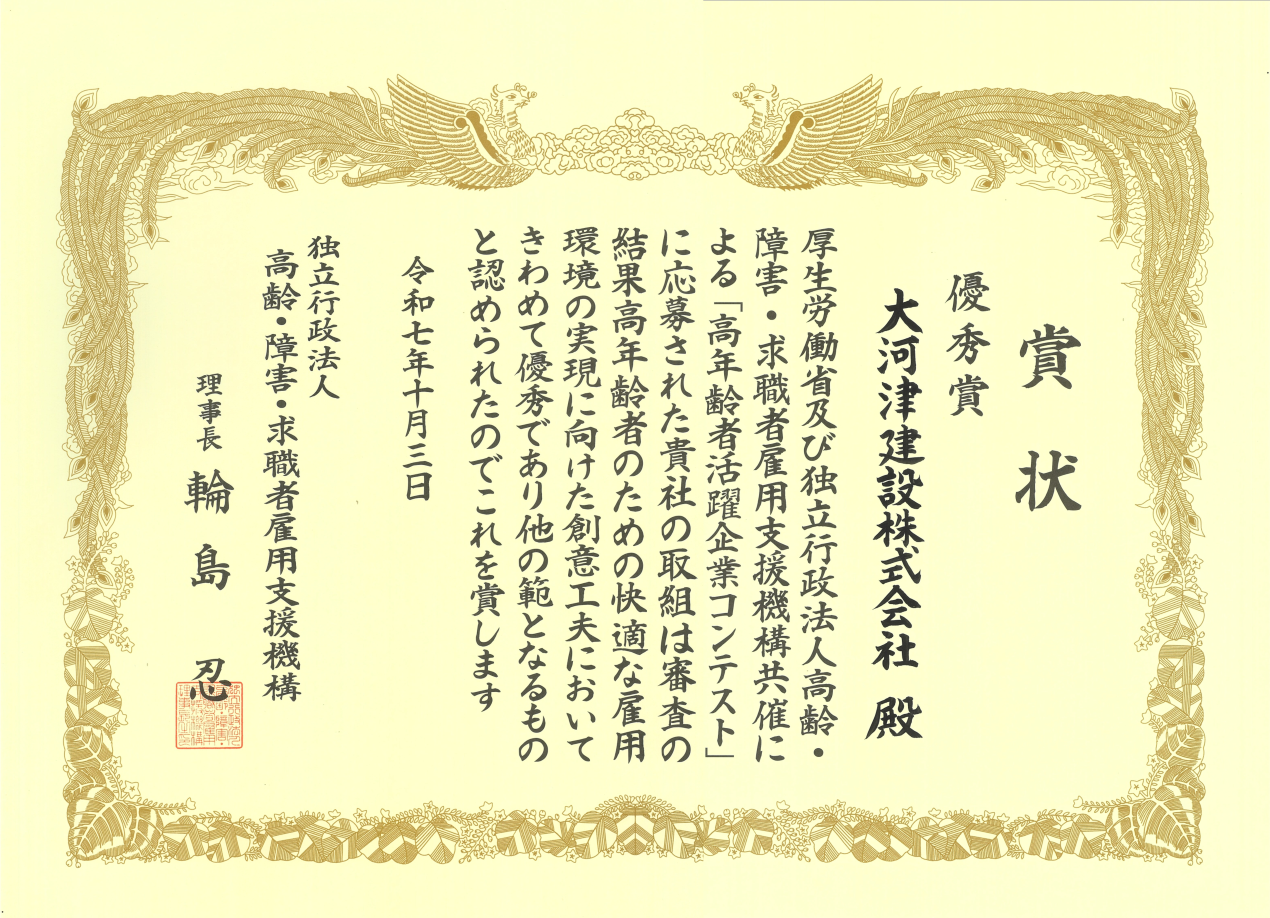 賞状
優秀賞
大河津建設株式会社 殿
厚生労働省及び独立行政法人高齢・
障害・求職者雇用支援機構共催に
よる「高年齢者活躍企業コンテスト」
に応募された貴社の取組は審査の
結果高年齢者のための快適な雇用
環境の実現に向けた創意工夫において
きわめて優秀であり他の範となるもの
と認められたのでこれを賞します
令和七年十月三日
独立行政法人
高齢・障害・求職者雇用支援機構
理事長 輪島 忍